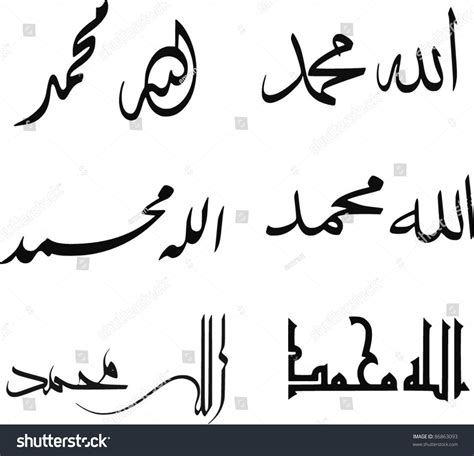 الله محمد
الله محمد
الله محمد
الله محمد
الله محمد
الله محمد
shutterstock
IMAGE ID: 86863093
www.shutterstock.com